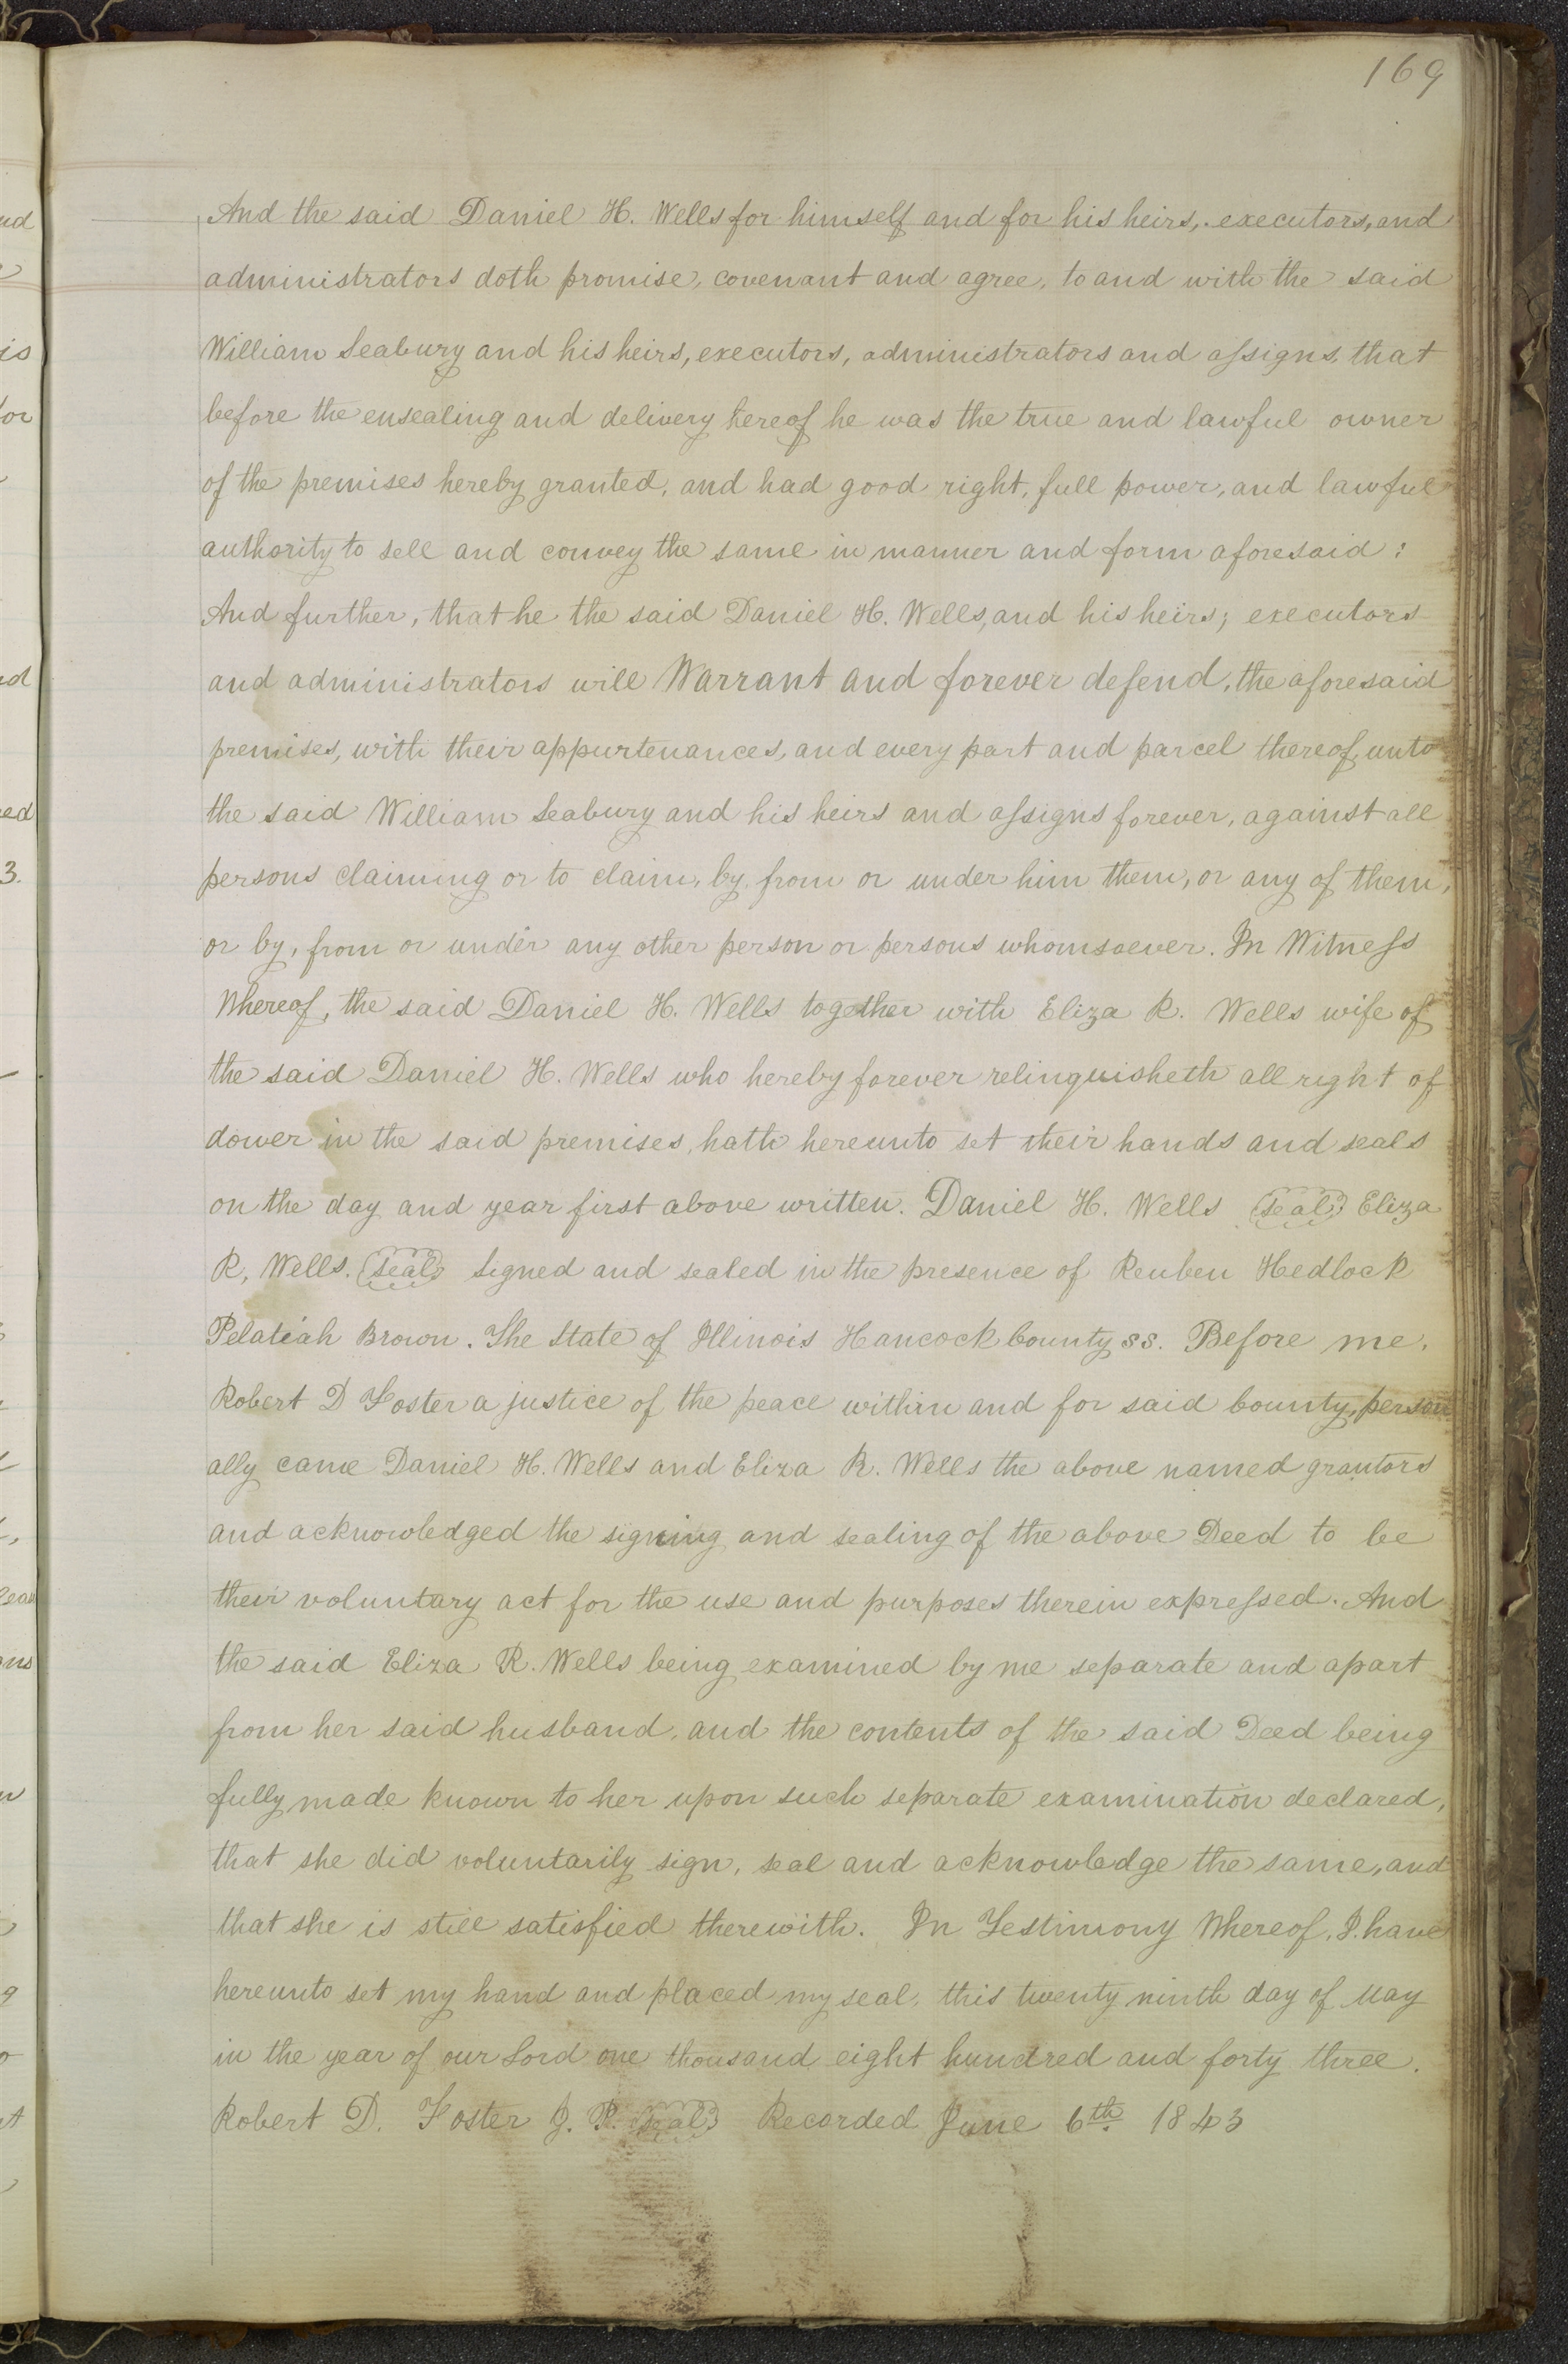 169
And the said Daniel H. Wells for himself and for his heirs, executors, and
administrators doth promise, covenant and agree, to and with the said
William Seabury and his heirs, executors, administrators and assigns, that
before the ensealing and delivery hereof he was the true and lawful owner
of the premises hereby granted, and had good right, full power, and lawful
authority to sell and convey the same in manner and form aforesaid:
And further, that he the said Daniel H. Wells, and his heirs; executors
and administrators will Warrant and forever defend, the aforesaid
premises, with their appurtenances, and every part and parcel thereof, unto
the said William Seabury and his heirs and assigns forever, against all
persons claiming or to claim, by, from or under him them, or any of them,
or by, from or under any other person or persons whomsoever. In Witness
Whereof, the said Daniel H. Wells together with Eliza R. Wells wife of
the said Daniel H. Wells who hereby forever relinquisheth all right of
dower in the said premises, hath hereunto set their hands and seals
on the day and year first above written. Daniel H. Wells (seal) Eliza
R, Wells. (seal) Signed and sealed in the presence of Reuben Hedlock
Pelatiah Brown. The State of Illinois Hancock County ss. Before me,
Robert D Foster a justice of the peace within and for said County, person
ally came Daniel H. Wells and Eliza R. Wells the above named grantors
and acknowledged the signing and sealing of the above Deed to be
their voluntary act for the use and purposes therein expressed. And
the said Eliza R. Wells being examined by me separate and apart
from her said husband, and the contents of the said Deed being
fully made known to her upon such separate examination declared,
that she did voluntarily sign, seal and acknowledge the same, and
that she is still satisfied therewith. In Testimony Whereof, I have
hereunto set my hand and placed my seal, this twenty ninth day of May
in the year of our Lord one thousand eight hundred and forty three.
Robert D. Foster J. P. (seal) Recorded June 6th 1843